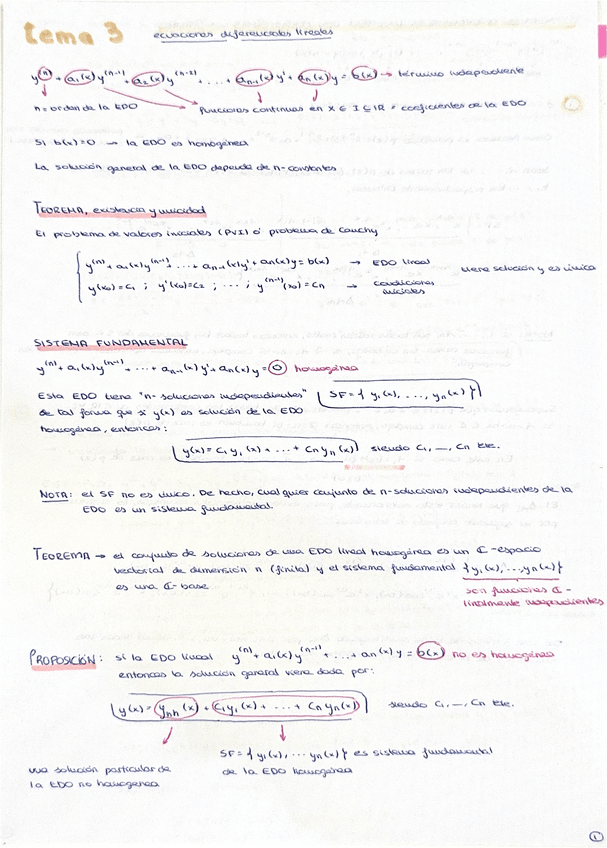 tema 3 ecuaciones diferenciales lineales
y⁽ⁿ⁾ + a₁(x) y⁽ⁿ⁻¹⁾ + a₂(x) y⁽ⁿ⁻²⁾ + ... + aₙ₋₁(x) y' + aₙ(x) y = b(x) → término independiente
n = orden de la EDO funciones continuas en x ∈ I ⊆ ℝ = coeficientes de la EDO
Si b(x)=0 → la EDO es homogénea
La solución general de la EDO depende de n-constantes
TEOREMA, existencia y unicidad
El problema de valores iniciales (PVI) o problema de Cauchy
y⁽ⁿ⁾ + a₁(x) y⁽ⁿ⁻¹⁾ ... + aₙ₋₁(x) y' + aₙ(x) y = b(x) → EDO lineal
tiene solución y es única
y(x₀)=c₁ ; y'(x₀)=c₂ ; ... ; y⁽ⁿ⁻¹⁾(x₀)=cₙ → condiciones
iniciales
SISTEMA FUNDAMENTAL
y⁽ⁿ⁾ + a₁(x) y⁽ⁿ⁻¹⁾ + ... + aₙ₋₁(x) y' + aₙ(x) y = 0 homogénea
Esta EDO tiene "n-soluciones independientes" SF = { y₁(x), ..., yₙ(x) }
de tal forma que si y(x) es solución de la EDO
homogénea, entonces:
y(x) = c₁ y₁(x) + ... + cₙ yₙ(x) siendo c₁, ..., cₙ cte.
NOTA: el SF no es único. De hecho, cualquier conjunto de n-soluciones independientes de la
EDO es un sistema fundamental.
TEOREMA → el conjunto de soluciones de una EDO lineal homogénea es un ℂ-espacio
vectorial de dimensión n (finita) y el sistema fundamental {y₁(x), ..., yₙ(x)}
es una ℂ-base.
son funciones ℂ-
linealmente independientes
PROPOSICIÓN: si la EDO lineal y⁽ⁿ⁾ + a₁(x) y⁽ⁿ⁻¹⁾ + ... + aₙ(x) y = b(x) no es homogénea
entonces la solución general viene dada por:
y(x) = yₙₕ(x) + c₁y₁(x) + ... + cₙ yₙ(x) siendo c₁, ..., cₙ cte.
SF = { y₁(x), ... yₙ(x) } es sistema fundamental
de la EDO homogénea
una solución particular de
la EDO no homogénea
1